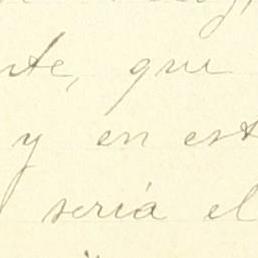 nte, que
y en est
sería el